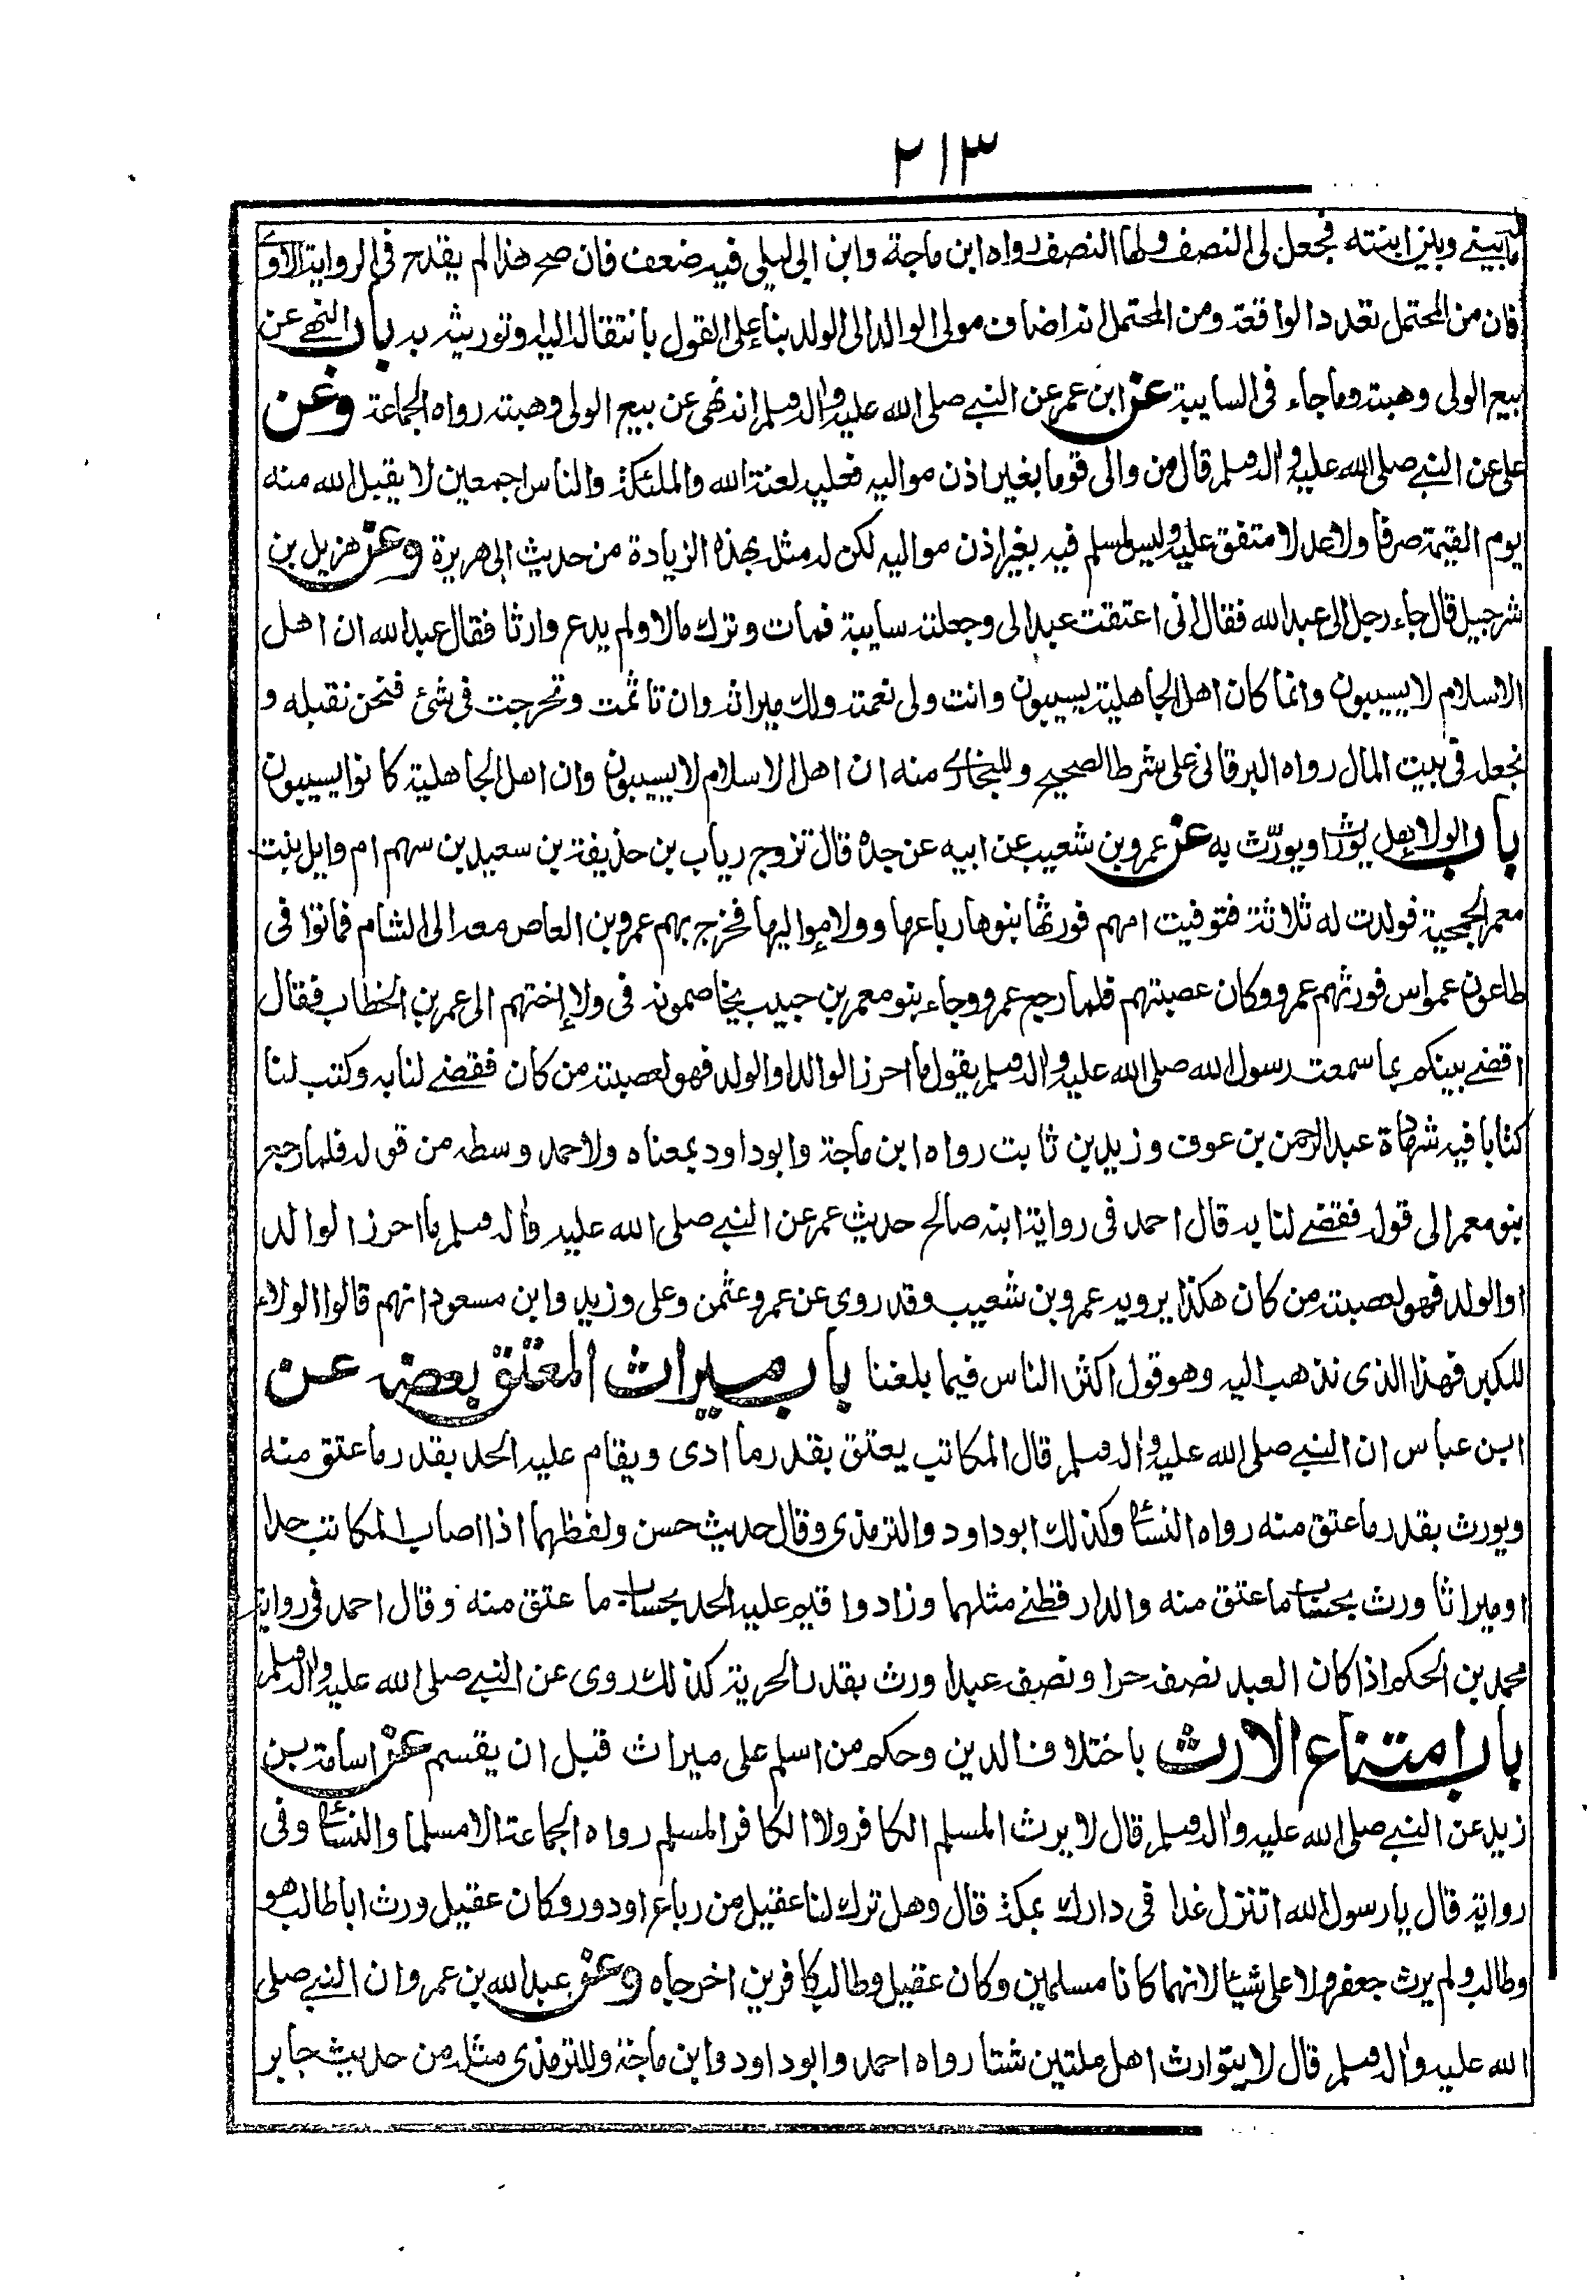 ٢١٣
ماله بيني وبين ابنته فجعل لى النصف ولها النصف رواه ابن ماجة وابن ابى ليلى فيه ضعف فان صح هذا لم يقدح فى الرواية الاولى
فان من المحتمل تعدد الواقعة ومن المحتمل انه اضاف مولى الوالد الى الولد بناء على القول بانتقاله اليه وتوريثه به باب النهى عن
بيع الولى وهبته وماجاء فى السايبة عن ابن عمر عن النبى صلى الله عليه واله وسلم انه نهى عن بيع الولى وهبته رواه الجماعة وعن
على عن النبى صلى الله عليه واله وسلم قال من والى قوما بغير اذن مواليه فعليه لعنة الله والملئكة والناس اجمعين لا يقبل الله منه
يوم القيمة صرفا ولا عدلا متفق عليه وليس لمسلم فيه بغير اذن مواليه لكن له مثله بهذه الزيادة من حديث ابى هريرة وعن هزيل بن
شرحبيل قال جاء رجل الى عبد الله فقال انى اعتقت عبدا لى وجعلته سايبة فمات وترك مالا ولم يدع وارثا فقال عبد الله ان اهل
الاسلام لا يسيبون وانما كان اهل الجاهلية يسيبون وانت ولى نعمته ولك ميراثه وان تاثمت وتحرجت فى شئ فنحن نقبله و
نجعله فى بيت المال رواه البرقانى على شرط الصحيح وللبخارى منه ان اهل الاسلام لا يسيبون وان اهل الجاهلية كانوا يسيبون
باب الولاء هل يورث او يورّث به عن عمرو بن شعيب عن ابيه عن جده قال تزوج رياب بن حذيفة بن سعيد بن سهم ام وايل بنت
معمر الجمحية فولدت له ثلاثة فتوفيت امهم فورثها بنوها رباعها وولاء مواليها فخرج بهم عمرو بن العاص معه الى الشام فماتوا فى
طاعون عمواس فورثهم عمرو وكان عصبتهم فلما رجع عمرو وجاء بنو معمر بن حبيب يخاصمونه فى ولاء اختهم الى عمر بن الخطاب فقال
اقضى بينكم بما سمعت رسول الله صلى الله عليه واله وسلم يقول ما احرز الوالد او الولد فهو لعصبته من كان فقضى لنا به وكتب لنا
كتابا فيه شهادة عبد الرحمن بن عوف وزيد بن ثابت رواه ابن ماجة وابو داود بمعناه ولاحمد وسطه من قوله فلما رجع
بنو معمر الى قوله فقضى لنا به قال احمد فى رواية ابنه صالح حديث عمر عن النبى صلى الله عليه واله وسلم ما احرز الوالد
او الولد فهو لعصبته من كان هكذا يرويه عمرو بن شعيب وقد روى عن عمر وعثمن وعلى وزيد وابن مسعود انهم قالوا الولاء
للكبر فهذا الذى نذهب اليه وهو قول اكثر الناس فيما بلغنا باب ميراث المعتق بعضه عن
ابن عباس ان النبى صلى الله عليه واله وسلم قال المكاتب يعتق بقدر ما ادى ويقام عليه الحد بقدر ما عتق منه
ويورث بقدر ما عتق منه رواه النسائى وكذلك ابو داود والترمذى وقال حديث حسن ولفظهما اذا اصاب المكاتب حدا
او ميراثا ورث بحساب ما عتق منه والدارقطنى مثلهما وزادوا قيم عليه الحد بحساب ما عتق منه وقال احمد فى رواية
محمد بن الحكم اذا كان العبد نصفه حرا ونصفه عبدا ورث بقدر الحرية كذلك روى عن النبى صلى الله عليه واله وسلم
باب امتناع الارث باختلاف الدين وحكم من اسلم على ميراث قبل ان يقسم عن اسامة بن
زيد عن النبى صلى الله عليه واله وسلم قال لا يرث المسلم الكافر ولا الكافر المسلم رواه الجماعة الا مسلما والنسائى وفى
رواية قال يا رسول الله اتنزل غدا فى دارك بمكة قال وهل ترك لنا عقيل من رباع او دور وكان عقيل ورث ابا طالب هو
وطالب ولم يرث جعفر ولا على شيئا لانهما كانا مسلمين وكان عقيل وطالب كافرين اخرجاه وعن عبد الله بن عمرو ان النبى صلى
الله عليه واله وسلم قال لا يتوارث اهل ملتين شتا رواه احمد وابو داود وابن ماجة وللترمذى مثله من حديث جابر